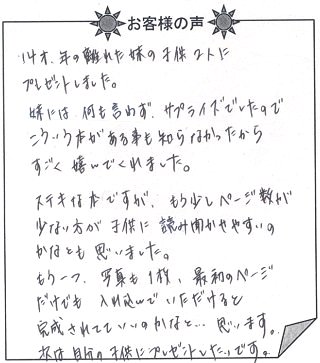 お客様の声
14才、年の離れた妹の子供2人に
プレゼントしました。
妹には、何も言わず、サプライズでしたので
こういう本がある事も知らなかったから
すごく嬉んでくれました。
ステキな本ですが、もう少しページ数が
少ない方が子供に読み聞かせやすいの
かなとも思いました。
もう一つ、写真も1枚、最初のページ
だけでも入れ込んでいただけると
完成されてていいのかなと…思います。
次は自分の子供にプレゼントしたいです。